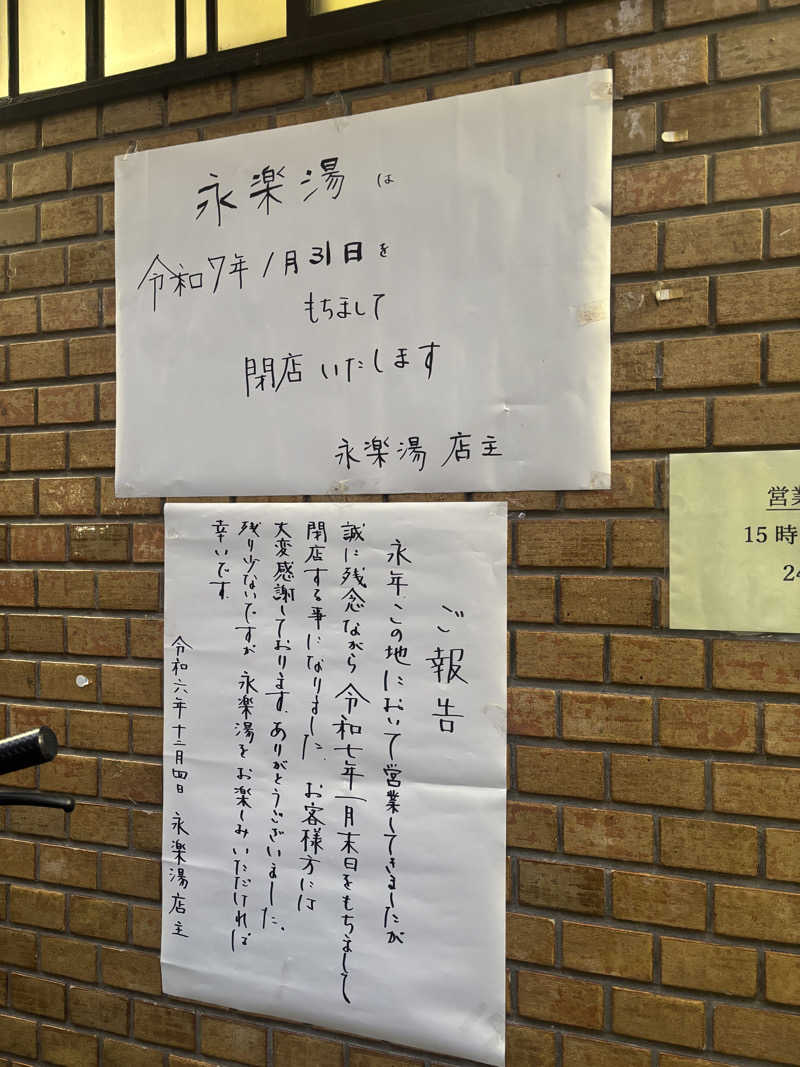 永楽湯は
令和7年1月31日を
もちまして
閉店いたします
永楽湯 店主
ご報告
永年、この地において営業してきましたが
誠に残念ながら 令和七年一月末日をもちまして
閉店する事になりました。お客様方には
大変感謝しております。ありがとうございました。
残り少ないですが 永楽湯をお楽しみいただければ
幸いです。
令和六年十二月四日 永楽湯店主
営業
15時
24